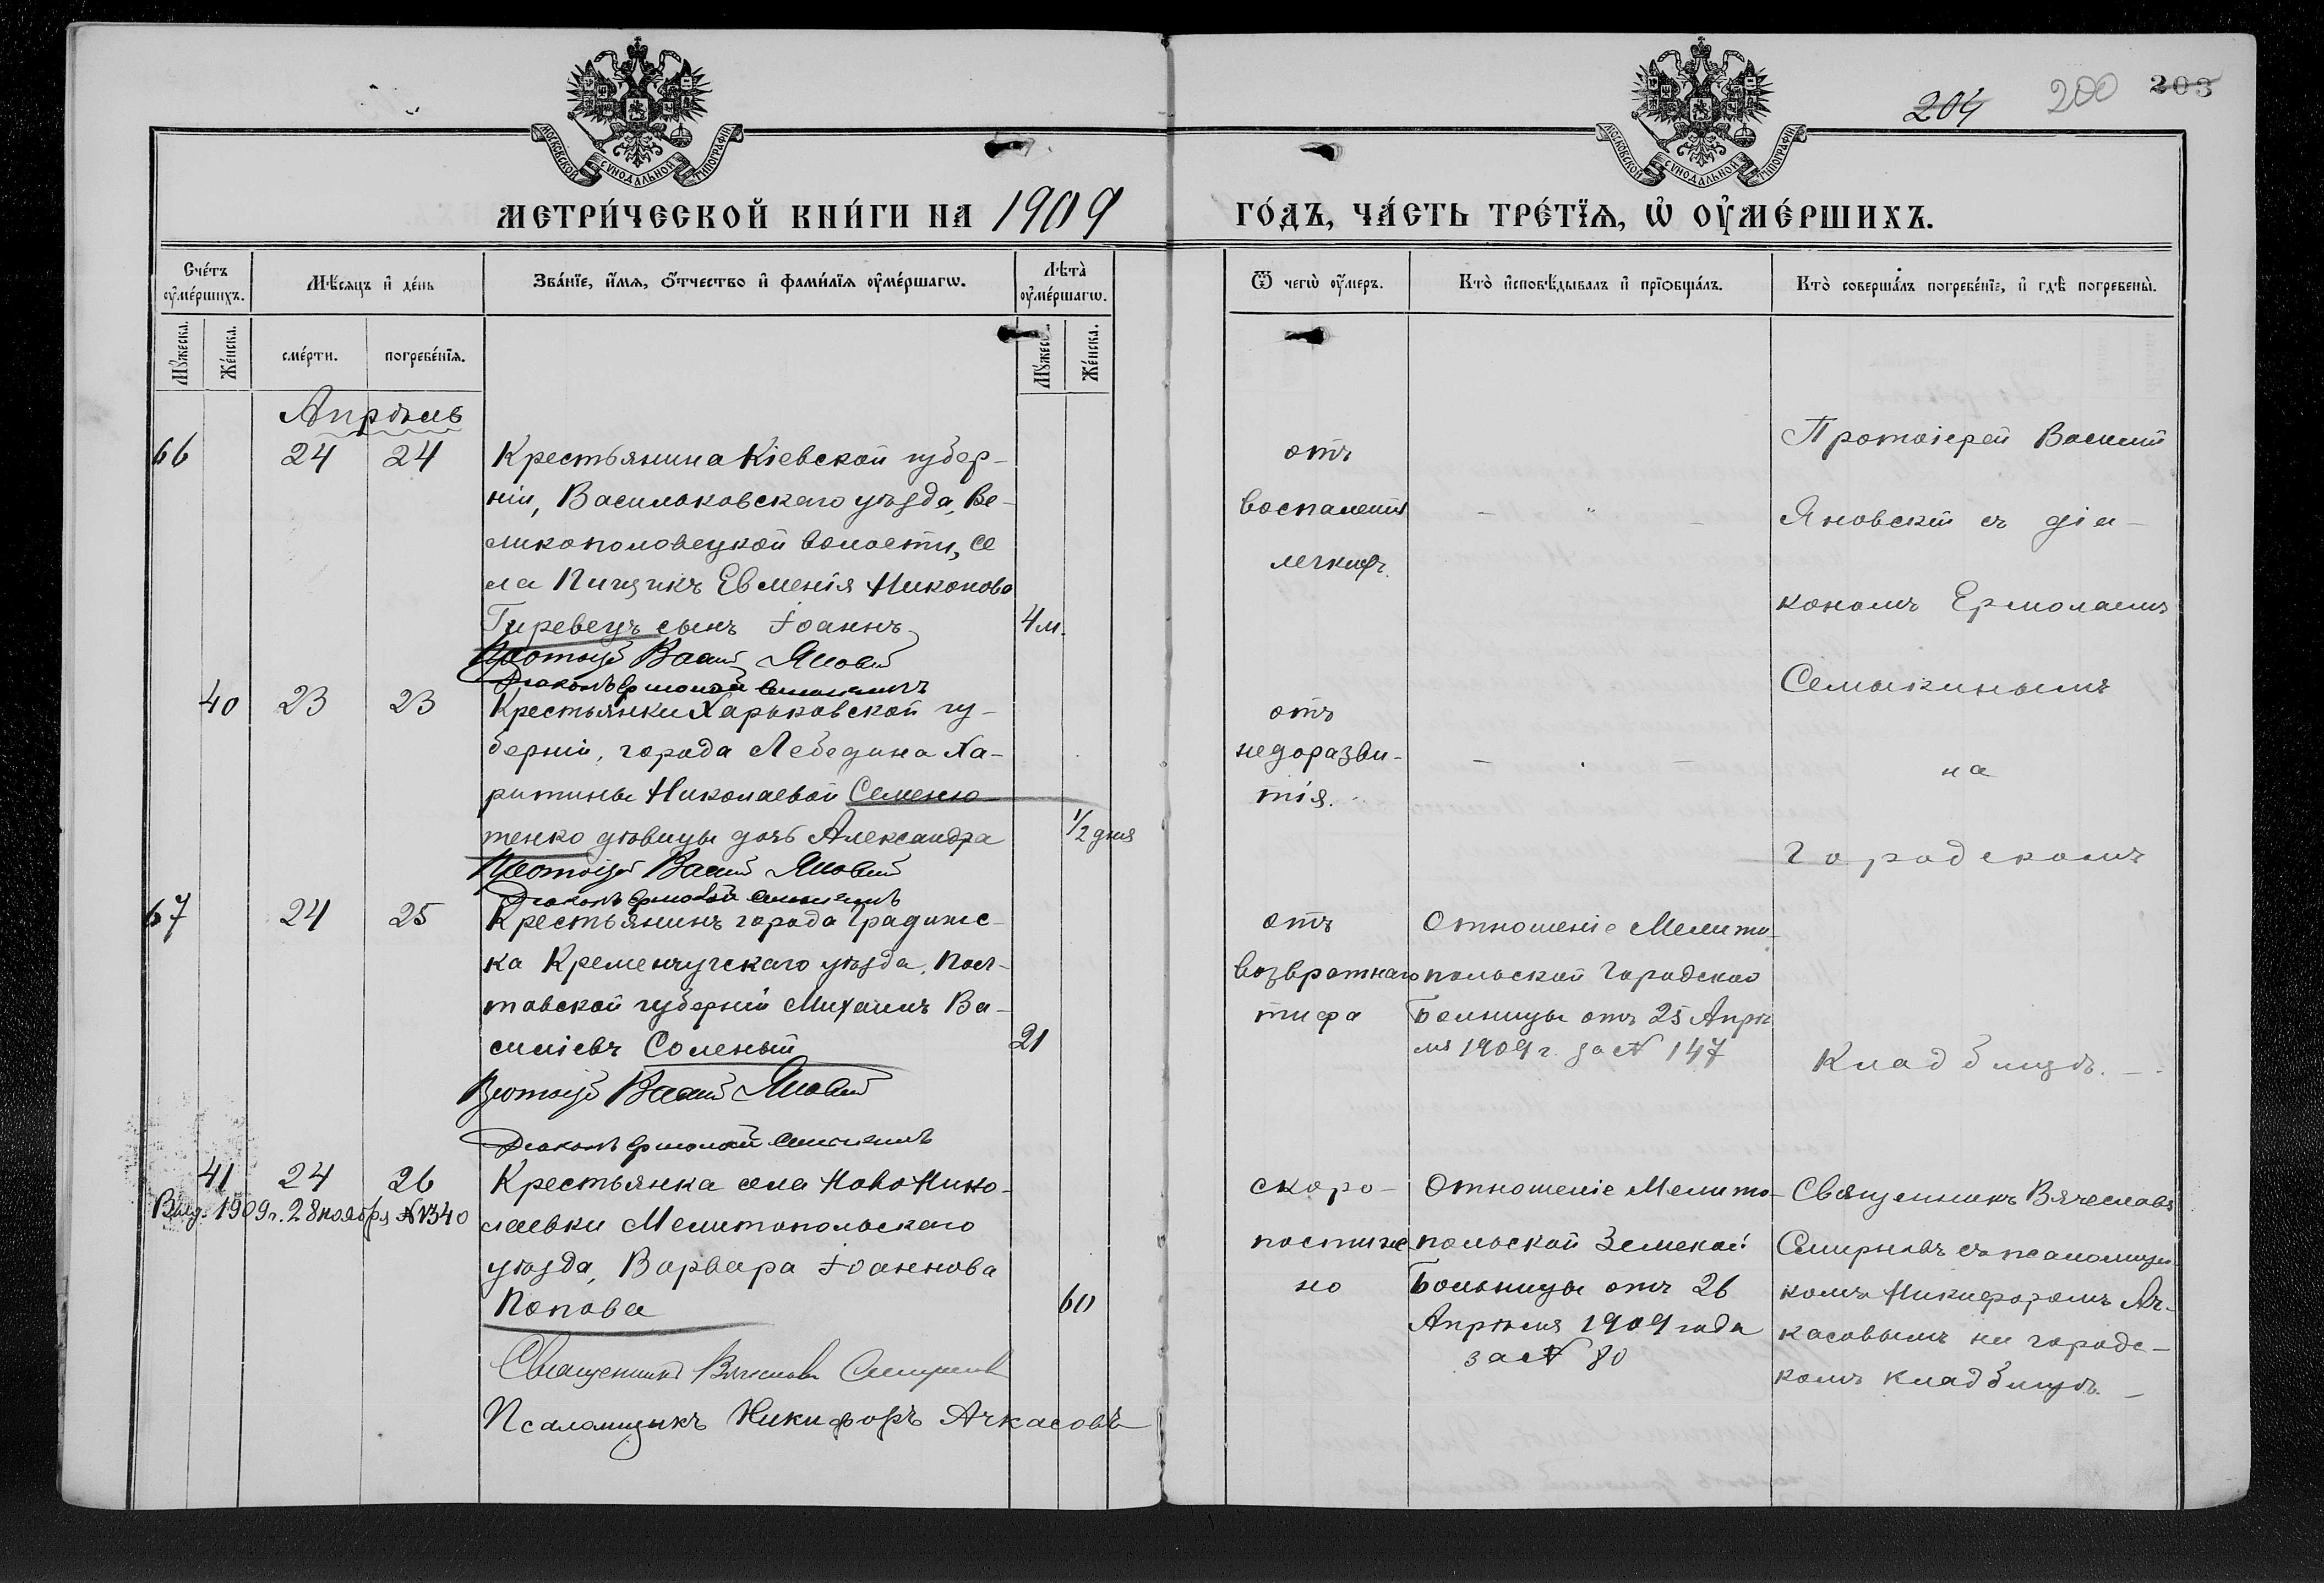 204 200 203
МОСКОВСКОЙ СѴНОДАЛЬНОЙ ТИПОГРАФІИ
МОСКОВСКОЙ СѴНОДАЛЬНОЙ ТИПОГРАФІИ
МЕТРИ́ЧЕСКОЙ КНИ́ГИ НА 1909 ГО́ДЪ, ЧА́СТЬ ТРЕ́ТЇѦ, Ѡ҆ ОУ҆МЕ́РШИХЪ.
Сче́тъ оу҆ме́ршихъ.
Мѣ́сяцъ и҆ де́нь
Зва́нїе, и҆́мѧ, ѻ҆́тчество и҆ фами́лїѧ оу҆ме́ршагѡ.
Лѣ́та оу҆ме́ршагѡ.
Ѿ чегѡ̀ оу҆́меръ.
Кто̀ и҆сповѣ́дывалъ и҆ прїѡбща́лъ.
Кто̀ соверша́лъ погребе́нїе, и҆ гдѣ̀ погребены̀.
Мꙋ́жеска.
Же́нска.
сме́рти.
погребе́нїѧ.
Мꙋ́жеск.
Же́нска.
Апрѣль
66 24 24
Крестьянина Кіевской губер-
ніи, Васильковскаго уѣзда, Ве-
ликополовецкой волости, се
ла Пищикъ Евменія Никонова
Гиревецъ сынъ Іоаннъ 4 м.
Протоіерей Васил Яновскій
Діаконъ Ермолай Семыкинъ
отъ
воспаленія
легкихъ.
- " -
Протоіерей Василій
Яновскій съ діа-
кономъ Ермолаемъ
Семыкинымъ
на
Городскомъ
Кладбищѣ. -
40 23 23
Крестьянки Харьковской гу-
берніи, города Лебедина Ха-
ритины Николаевой Семеню-
тенко дѣвицы дочь Александра 1/2 дня
Протоіерей Васил Яновскій
Діаконъ Ермолай Семыкинъ
отъ
недоразви-
тія.
67 24 25
Крестьянинъ города Градижс-
ка Кременчугскаго уѣзда, Пол-
тавской губерніи Михаилъ Ва-
силіевъ Соленый 21
Протоіерей Васил Яновскій
Діаконъ Ермолай Семыкинъ
отъ
возвратнаго
тифа
Отношеніе Мелито-
польской Городской
Больницы отъ 25 Апрѣ
ля 1909 г. за № 147
41 24 26
Выд. 1909 г. 28 ноября № 1340
Крестьянка села Ново Нико-
лаевки Мелитопольскаго
уѣзда, Варвара Іоаннова
Попова 60
Священникъ Вячеславъ Смирновъ
Псаломщикъ Никифоръ Ачкасовъ
скоро-
постиж
но
Отношеніе Мелито-
польской Земской
Больницы отъ 26
Апрѣля 1909 года
за № 80
Священникъ Вячеславъ
Смирновъ съ псаломщи-
комъ Никифоромъ Ач-
касовымъ на городс-
комъ кладбищѣ. -